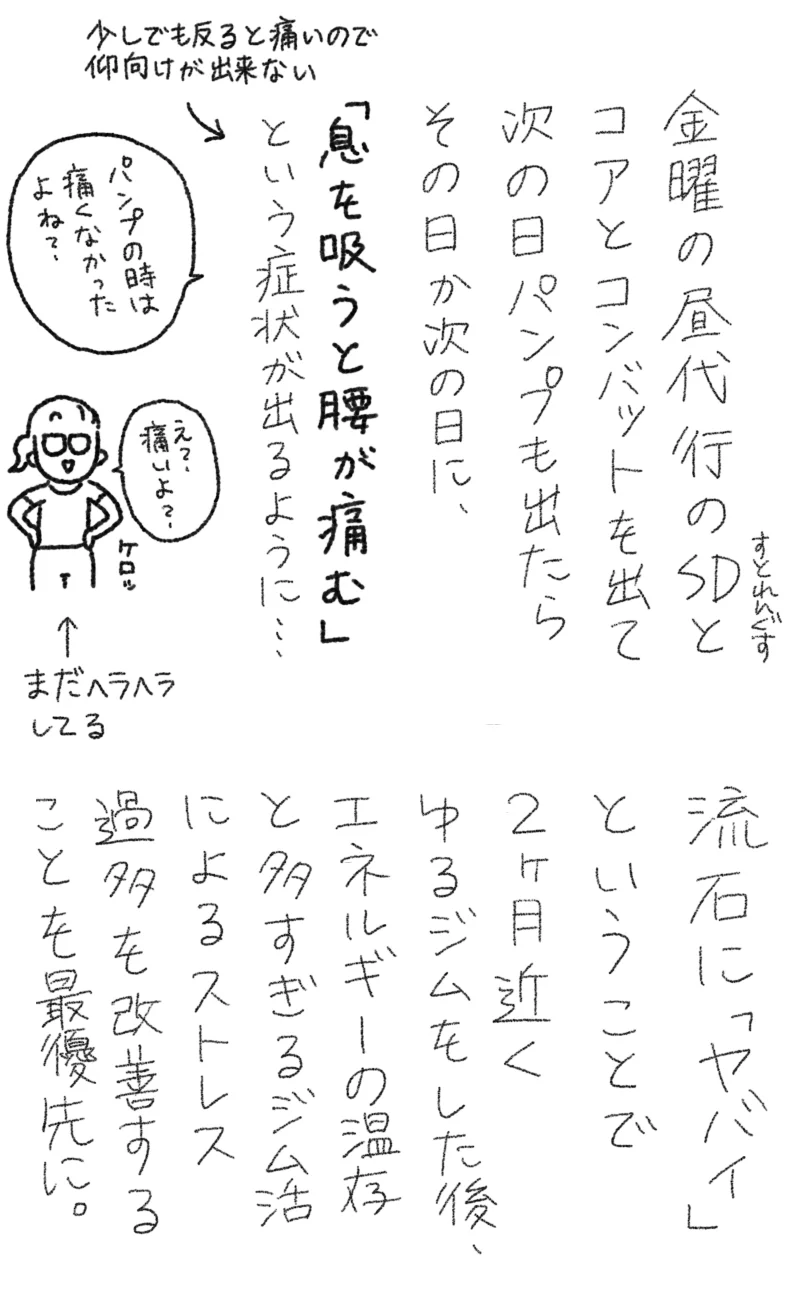 金曜の昼代行のSDと
すとれんぐす
コアとコンバットを出て
次の日パンプも出たら
その日か次の日に、
「息を吸うと腰が痛む」
という症状が出るように…
少しでも反ると痛いので
仰向けが出来ない
パンプの時は
痛くなかった
よね?
え?
痛いよ?
ケロッ
まだヘラヘラ
してる
流石に「ヤバイ」
ということで
2ヶ月近く
ゆるジムをした後、
エネルギーの温存
と多すぎるジム活
によるストレス
過多を改善する
ことを最優先に。